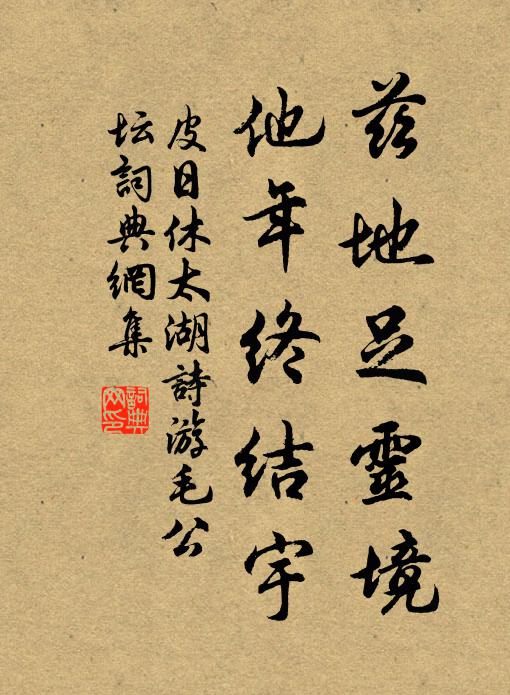 茲地足靈境
他年終結宇
皮日休太湖詩游毛公
坛詞典網集
詞典
网印